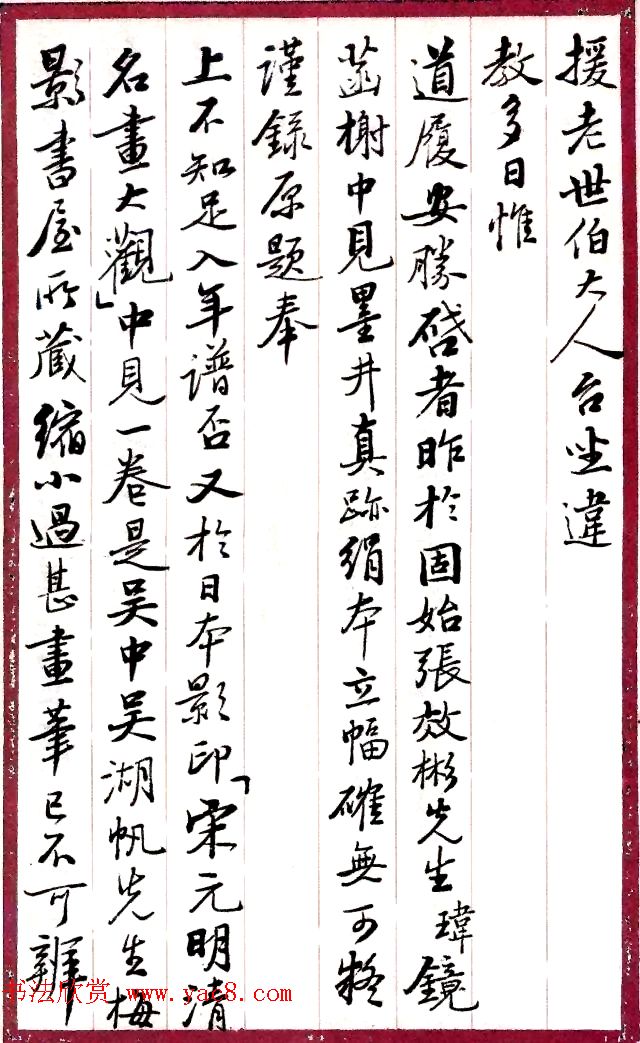 援老世伯大人台坐違
教多日惟
道履安勝啓者昨於固始張效彬先生瑋鏡
菡榭中見墨井真跡絹本立幅確無可疑
謹錄原題奉
上不知足入年譜否又於日本影印「宋元明清
名畫大觀」中見一卷是吴中吴湖帆先生梅
影書屋所藏縮小過甚畫筆已不可辨
书法欣赏 www.yac8.com